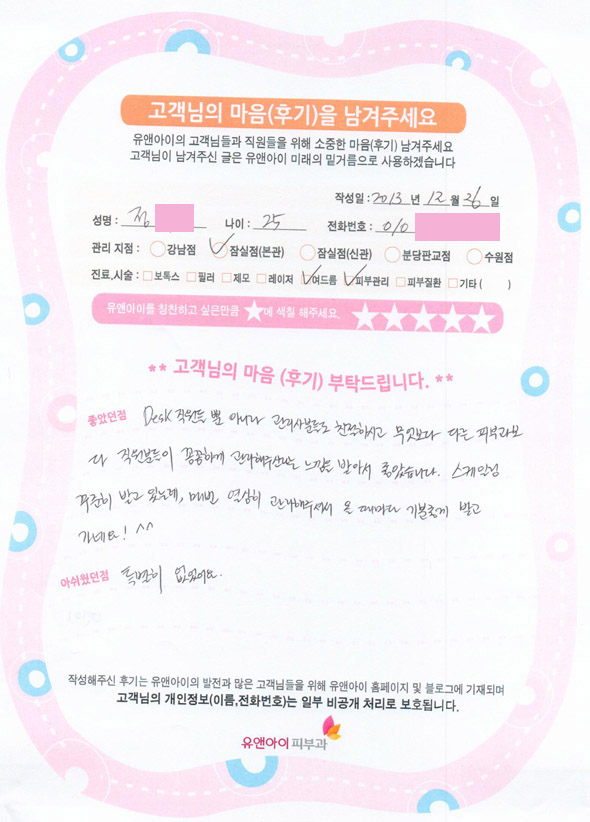 고객님의 마음(후기)을 남겨주세요
유앤아이의 고객님들과 직원들을 위해 소중한 마음(후기) 남겨주세요
고객님이 남겨주신 글은 유앤아이 미래의 밑거름으로 사용하겠습니다
작성일 : 2013 년 12 월 26 일
성명 : 정 나이 : 25 전화번호 : 010
관리 지점 : 강남점 잠실점(본관) 잠실점(신관) 분당판교점 수원점
진료,시술 : 보톡스 필러 제모 레이저 여드름 피부관리 피부질환 기타 ( )
유앤아이를 칭찬하고 싶은만큼 ★에 색칠 해주세요. ★★★★★
** 고객님의 마음 (후기) 부탁드립니다. **
좋았던점 Desk 직원들 뿐 아니라 관리사분들도 친절하시고 무엇보다 다른 피부과보
다 직원분들이 꼼꼼하게 관리해주신다는 느낌을 받아서 좋았습니다. 스케일링
꾸준히 받고 있는데, 매번 열심히 관리해주셔서 올 때마다 기분좋게 받고
가네요! ^^
아쉬웠던점 특별히 없었어요.
작성해주신 후기는 유앤아이의 발전과 많은 고객님들을 위해 유앤아이 홈페이지 및 블로그에 기재되며
고객님의 개인정보(이름,전화번호)는 일부 비공개 처리로 보호됩니다.
유앤아이 피부과